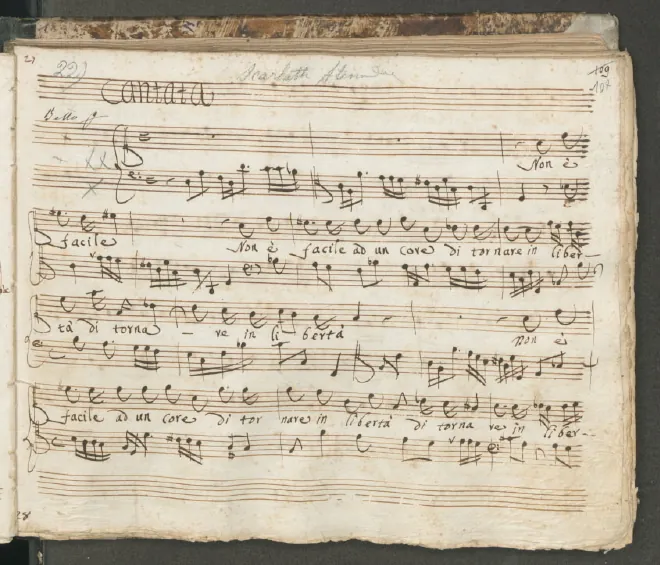 22) Scarlatti 109
107
Cantata
Non è
facile Non è facile ad un core di tornare in liber-
tà di torna - re in li bertà Non è
facile ad un core di tor nare in libertà di torna re in liber-
28